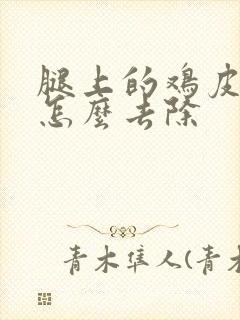 腿上的鸡皮
怎麽去除
青木隼人(青木